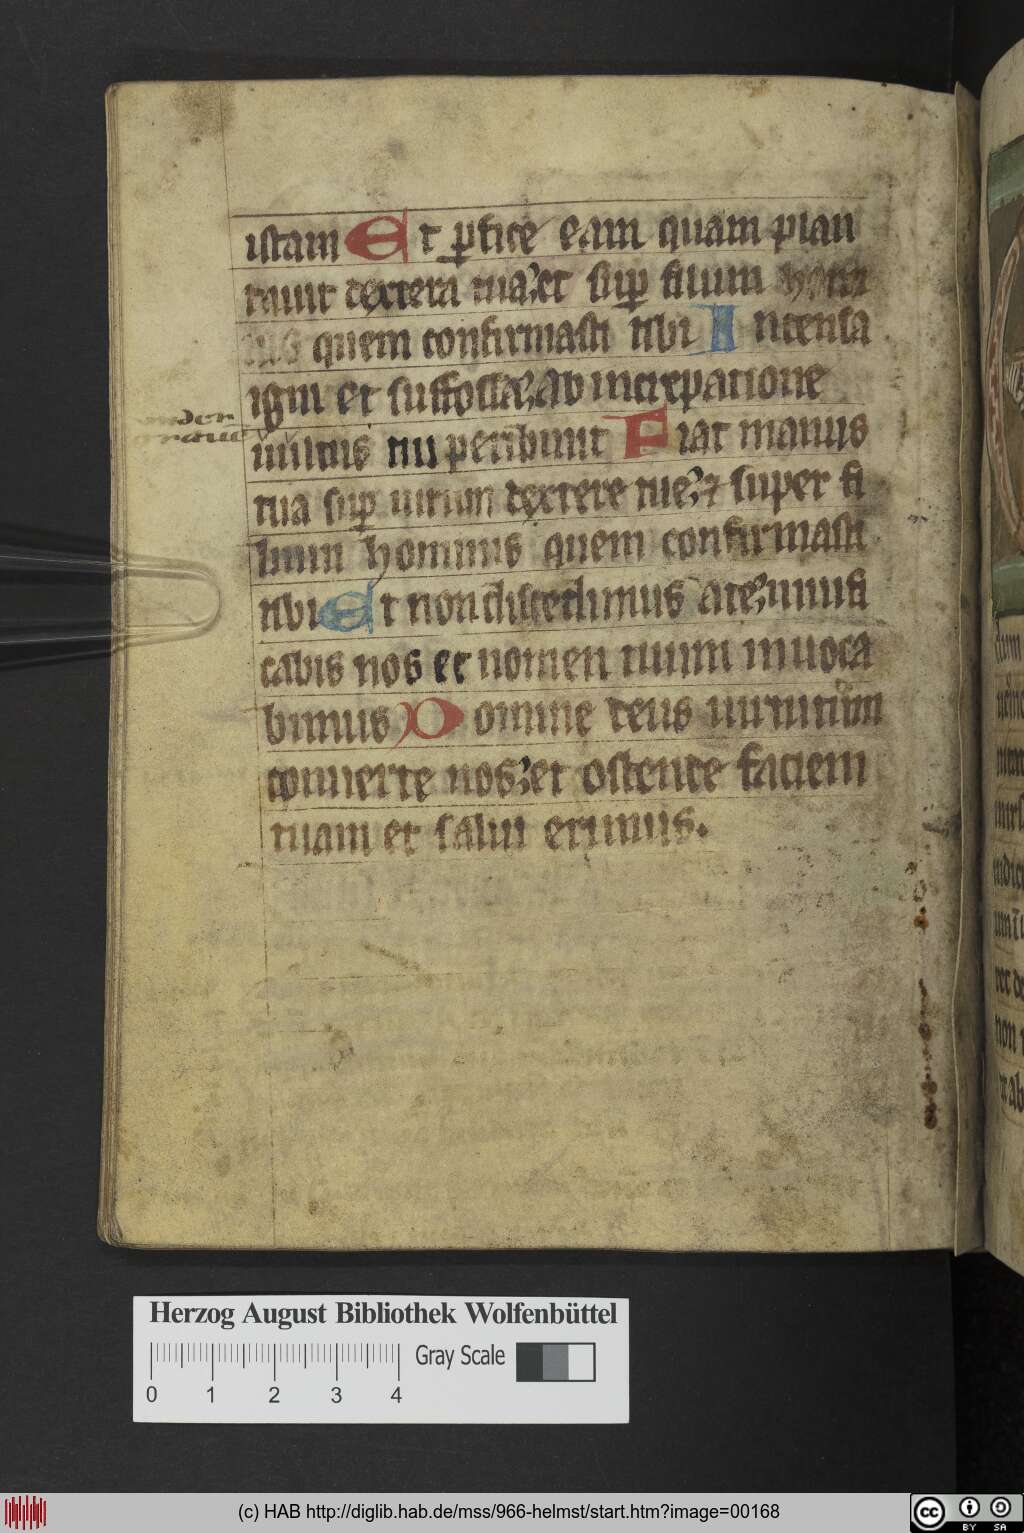 istam Et ꝑfice eam quam plan
tauit dextera tua et suꝑ filium homi
nis quem confirmasti tibi Incensa
igni et suffossa ab increpatione
onder
graue
uultus tui peribunt Fiat manus
tua suꝑ uirum dextere tue ⁊ super fi
lium hominis quem confirmasti
tibi Et non discedimus a te uiuifi
cabis nos et nomen tuum inuoca
bimus Domine deus uirtutum
conuerte nos et ostende faciem
tuam et salui erimus.
Herzog August Bibliothek Wolfenbüttel
Gray Scale
0 1 2 3 4
(c) HAB http://diglib.hab.de/mss/966-helmst/start.htm?image=00168
cc BY SA